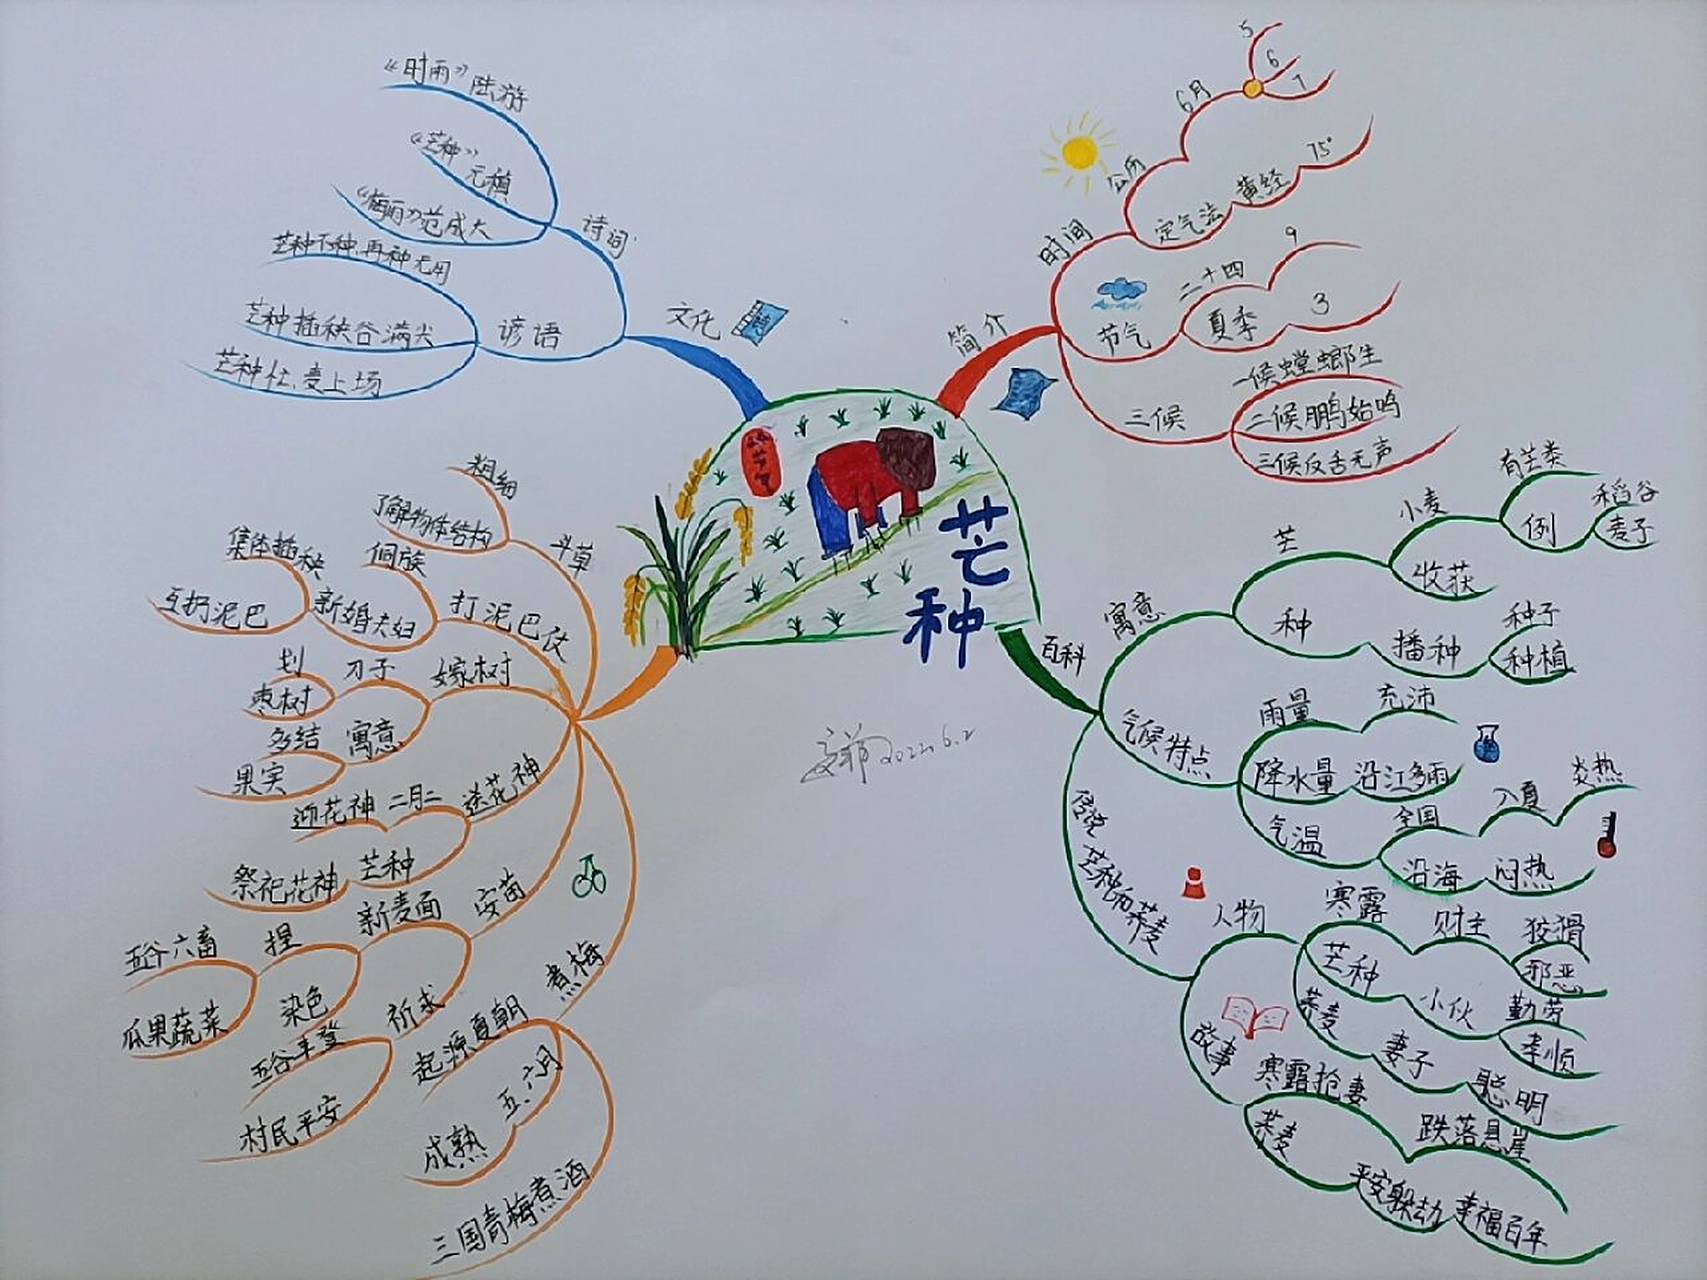 芒种
简介
时间
公历
6月
5
6
7
定气法
黄经
75°
节气
二十四
9
夏季
3
三候
一候螳螂生
二候鹏始鸣
三候反舌无声
百科
寓意
芒
小麦
有芒类
例
稻谷
麦子
收获
种
播种
种子
种植
气候特点
雨量
充沛
降水量
沿江多雨
气温
全国
入夏
炎热
沿海
闷热
传说
芒种和荞麦
人物
寒露
财主
狡猾
邪恶
芒种
小伙
勤劳
孝顺
荞麦
妻子
聪明
故事
寒露抢妻
跌落悬崖
荞麦
平安躲劫
幸福百年
斗草
粗细
了解物体结构
打泥巴仗
侗族
新婚夫妇
集体插秧
互扔泥巴
嫁树
刀子
划
枣树
寓意
多结
果实
送花神
二月二
迎花神
芒种
祭祀花神
安苗
新麦面
捏
五谷六畜
瓜果蔬菜
染色
祈求
五谷丰登
村民平安
煮梅
起源夏朝
五、六月
成熟
三国青梅煮酒
文化
诗词
《时雨》陆游
《芒种》
元稹
《梅雨》范成大
谚语
芒种不种,再种无用
芒种插秧谷满尖
芒种忙,麦上场
2022.6.2